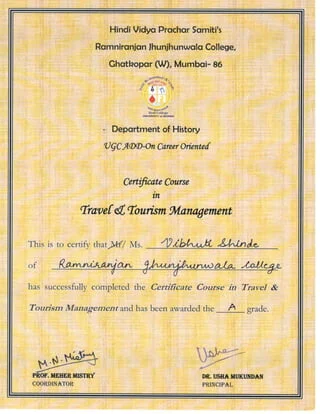 Hindi Vidya Prachar Samiti's
Ramniranjan Jhunjhunwala College,
Ghatkopar (W), Mumbai- 86
Department of History
UGC ADD-On Career Oriented
Certificate Course
in
Travel & Tourism Management
This is to certify that Mr/ Ms. Vibhuti Shinde
of Ramniranjan Jhunjhunwala College
has successfully completed the Certificate Course in Travel &
Tourism Management and has been awarded the A grade.
M.N. Mistry
Usha
PROF. MEHER MISTRY
COORDINATOR
DR. USHA MUKUNDAN
PRINCIPAL